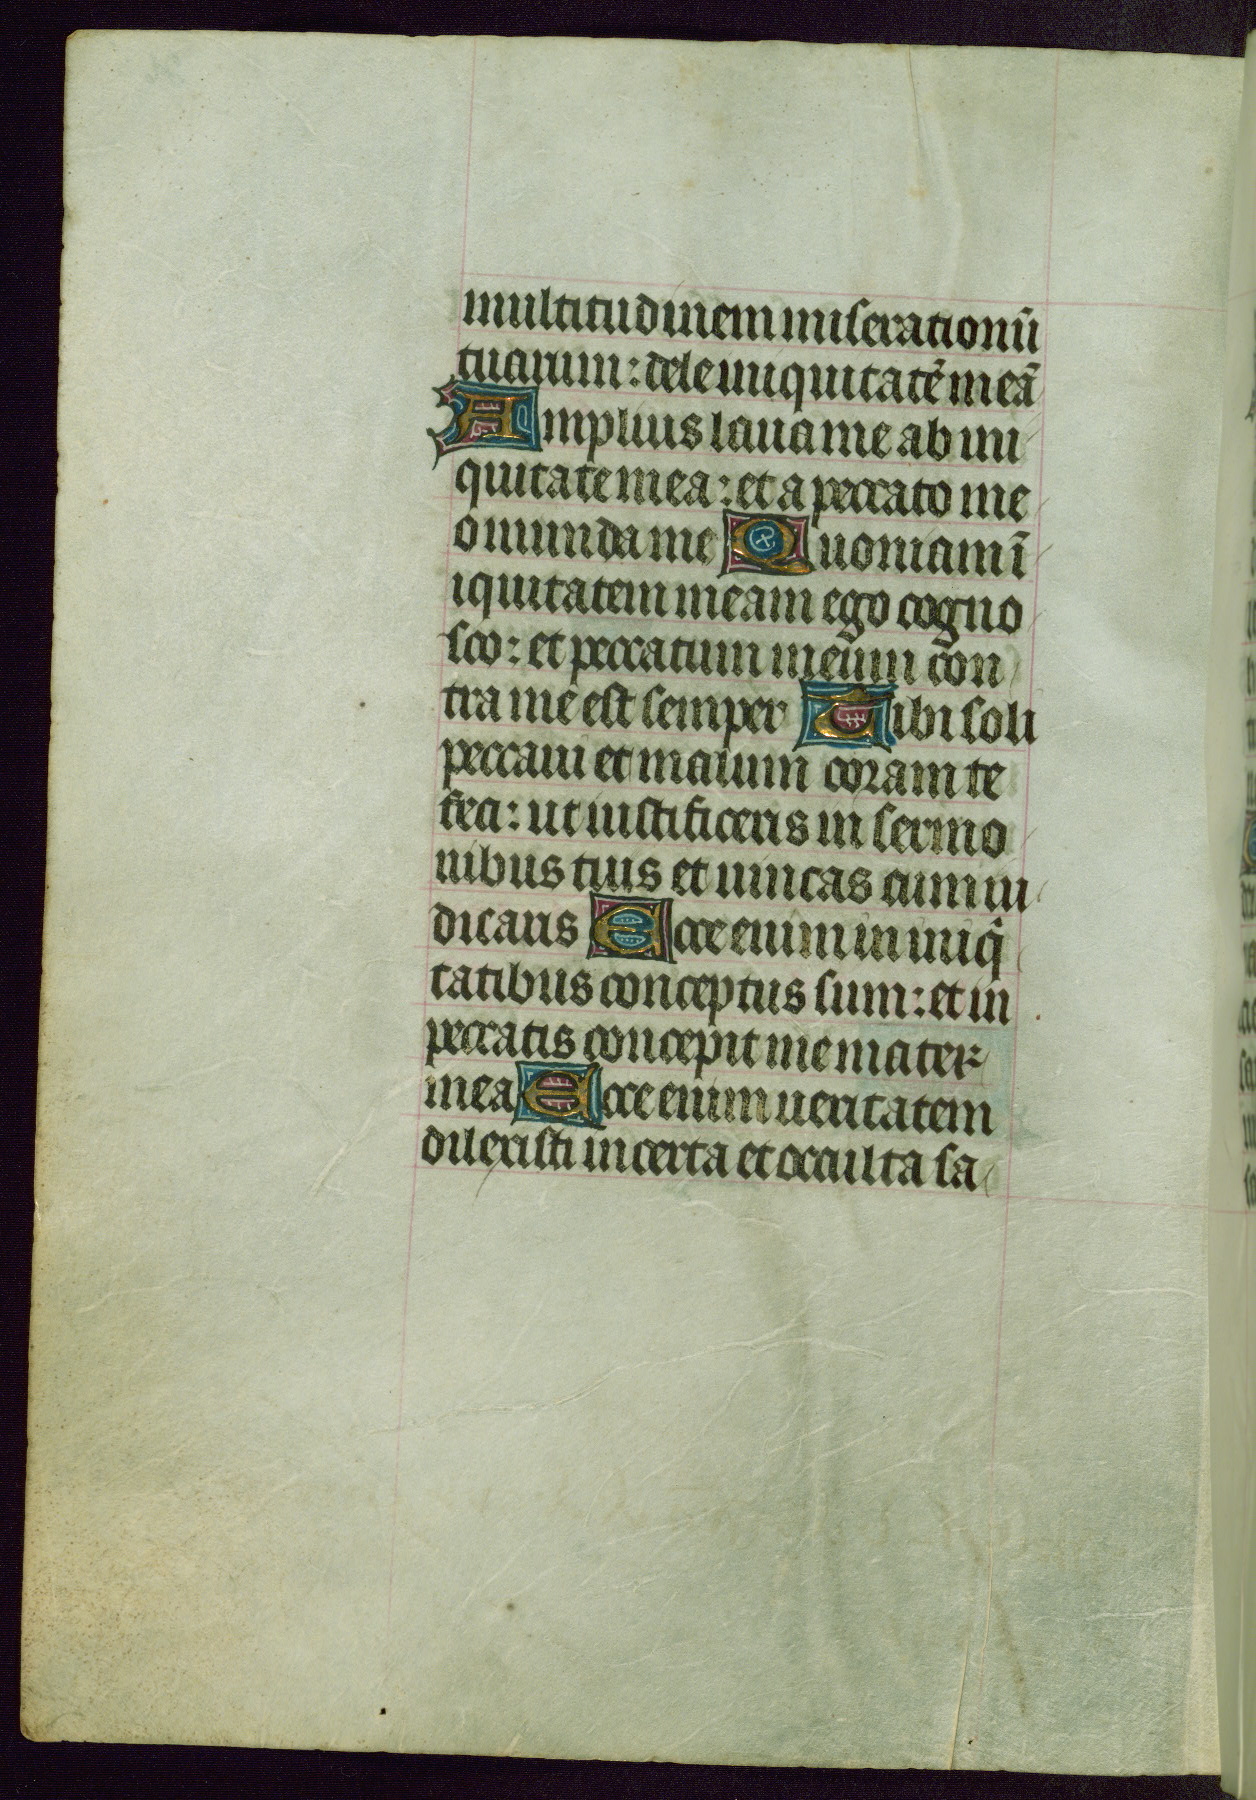 multitudinem miserationū
tuarum: dele iniquitatē meā
Amplius laua me ab ini
quitate mea: et a peccato me
o munda me Quoniam ī
iquitatem meam ego cogno
sco: et peccatum meum con
tra me est semper Tibi soli
peccaui et malum coram te
feci: ut iustificeris in sermo
nibus tuis et uincas cum iu
dicaris Ecce enim in iniq̄
tatibus conceptus sum: et in
peccatis concepit me mater
mea Ecce enim ueritatem
dilexisti incerta et occulta sa